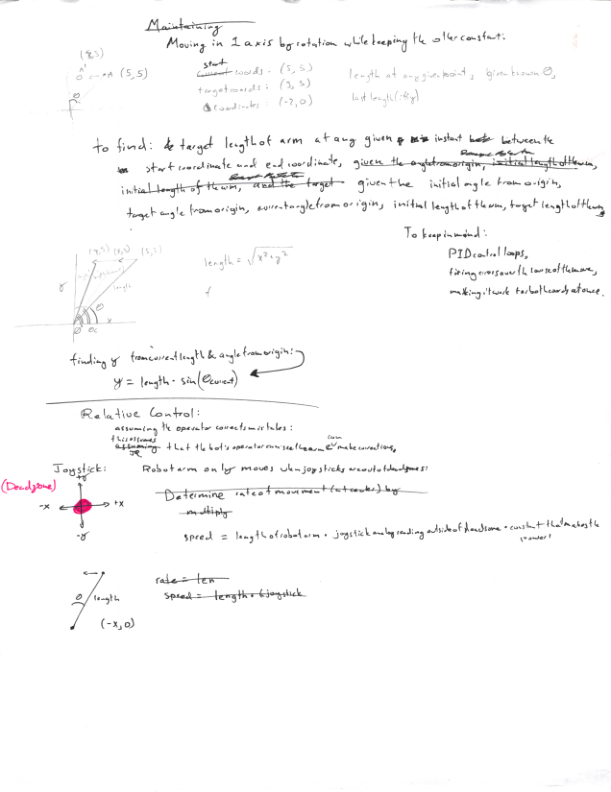 Maintaining
Moving in 1 axis by rotation while keeping the other constant:
(3,5)
A' A (5,5)
θ
start
current coords: (5,5)
target coords: (3,5)
Δ coordinates: (-2,0)
length at any given point, given known θ,
last length
to find: target length of arm at any given instant between the
start coordinate and end coordinate, given the angle from origin, initial length of the arm,
initial length of the arm, and the target given the initial angle from origin,
target angle from origin, current angle from origin, initial length of the arm, target length of the arm
To keep in mind:
PID control loops,
fixing errors over the course of the move,
making it work for both coords at once.
(5,5)
length
y
θ
x
length = √x²+y²
finding y from current length & angle from origin:
y = length · sin(θcurrent)
Relative Control:
assuming the operator corrects mistakes:
this assumes
assuming that the bot's operator can see the arm & can make corrections,
Joystick: Robot arm only moves when joysticks are out of deadzones:
(Deadzone)
+y
-x +x
-y
Determine rate of movement (at center) by
multiply
speed = length of robot arm · joystick analog reading outside of deadzone · constant that makes the
power
θ length
(-x,0)
rate = len
speed = length · joystick